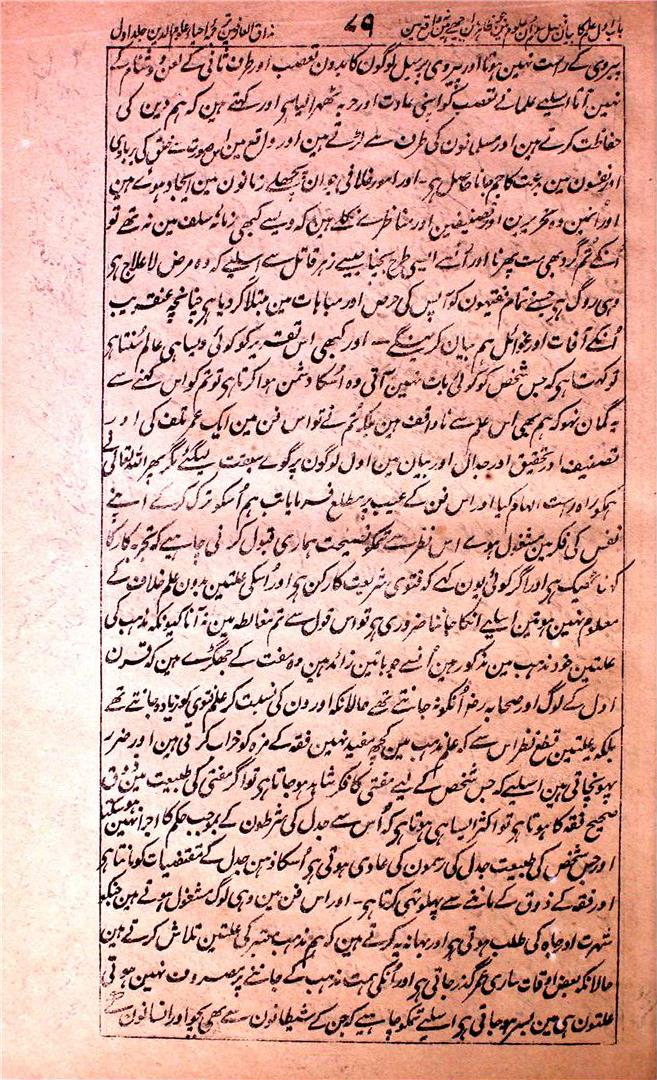 باب اول علم کا بیان فصل سوم ان علوم میں جنکو ظاہر میں اچھے واقع میں ۷۹ مذاق العارفین ترجمہ احیاء علوم الدین جلد اول
پیروی کے درست نہین ہوتا اور پیروی پر سبیل لوگون کا بدون تعصب اور طرف ثانی کے لعن و دشنام کے
نہین آتا اسلیے علما نے تعصب کو اپنی عادت اور حربہ ٹھہرالیا ہی اور کہتے ہین کہ ہم دین کی
حفاظت کرتے ہین اور مسلمانون کی طرف سے لڑتے ہین اور واقع مین اس صورت سے خلق کی بربادی
اور نفسون مین بدعت کا جم جانا حاصل ہی ۔ اور امور خلافی جو ان پچھلے زمانون مین ایجاد ہوئے ہین
اور انمین وہ تحریرین اور تصنیفین اور مناظرے نکلے ہین کہ ویسے کبھی زمانۂ سلف مین نہ تھے تو
انکے تم گرد بھی مت پھرنا اور انسے ایسی طرح بچنا جیسے زہر قاتل سے اسلیے کہ وہ مرض لا علاج ہی
وہی روگ ہی جسنے تمام فقیہون کو آپس کی حرص اور مباہات مین مبتلا کر دیا ہی چنانچہ عنقریب
اُنکے آفات اور غوائل ہم بیان کرینگے ۔ اور کبھی اس تقریر کو کوئی دنیا ہی عالم سنتا ہی
تو کہتا ہی کہ جس شخص کو کوئی بات نہین آتی وہ اُسکا دشمن ہوا کرتا ہی تو تم کو اس کہنے سے
یہ گمان نہو کہ ہم بھی اس علم سے ناواقف ہین بلکہ ہم نے تو اس فن مین ایک عمر تلف کی اور
تصنیف اور تحقیق اور جدال اور بیان مین اول لوگون پر گوے سبقت لیگئے مگر پھر اللہ تعالی نے
ہمکو راہ راست الہام کیا اور اس فن کے عیب پر مطلع فرمایا تب ہم اُسکو ترک کرکے اپنے
نفس کی فکر مین مشغول ہوے اس نظر سے تمکو نصیحت ہماری قبول کرنی چاہیے کہ تجربہ کار کا
کہنا ٹھیک ہی اور اگر کوئی یون کہے کہ فتوی شریعت کا رکن ہی اور اُسکی علتین بدون علم خلاف کے
معلوم نہین ہوتین اسلیے انکا جاننا ضروری ہی تو اس قول سے تم مغالطہ مین نہ آنا کیونکہ مذہب کی
علتین خود مذہب مین مذکور ہین اُنسے جو باتین زائد ہین وہ مفت کے جھگڑے ہین کہ قرن
اول کے لوگ اور صحابہ رضہ اُنکو نہ جانتے تھے حالانکہ اورون کی نسبت کر علم فتوی کو زیادہ جانتے تھے
بلکہ یہ علتین قطع نظر اس سے کہ علم مذہب مین کچھ مفید نہین فقہ کے مزہ کو خراب کرتی ہین اور ضرر
پہونچاتی ہین اسلیے کہ جس شخص کے لیے مفتی کا فکر شاہد ہو جاتا ہی تو اگر مفتی کی طبیعت مین ذوق
صحیح فقہ کا ہوتا ہی تو اکثر ایسا ہی ہوتا ہی کہ اُس سے جدل کی شرطون کے بموجب حکم کا اجرا نہین ہو سکتا
اور جس شخص کی طبیعت جدل کی رسمون کی عادی ہوتی ہی اُسکا ذہن جدل کے مقتضیات کو مانتا ہی
اور فقہ کے ذوق کے ماننے سے پہلو تہی کرتا ہی ۔ اور اس فن مین وہی لوگ مشغول ہوتے ہین جنکو
شہرت اور جاہ کی طلب ہوتی ہی اور بہانہ یہ کرتے ہین کہ ہم مذہب کی علتین تلاش کرتے ہین
حالانکہ بعض اوقات ساری عمر گذر جاتی ہی اور اُنکی ہمت مذہب کے جاننے پر مصروف نہین ہوتی
علتون ہی مین بسر ہو جاتی ہی اسلیے تمکو چاہیے کہ جن کے شیطانون سے بھی بچو اور انسانون کے